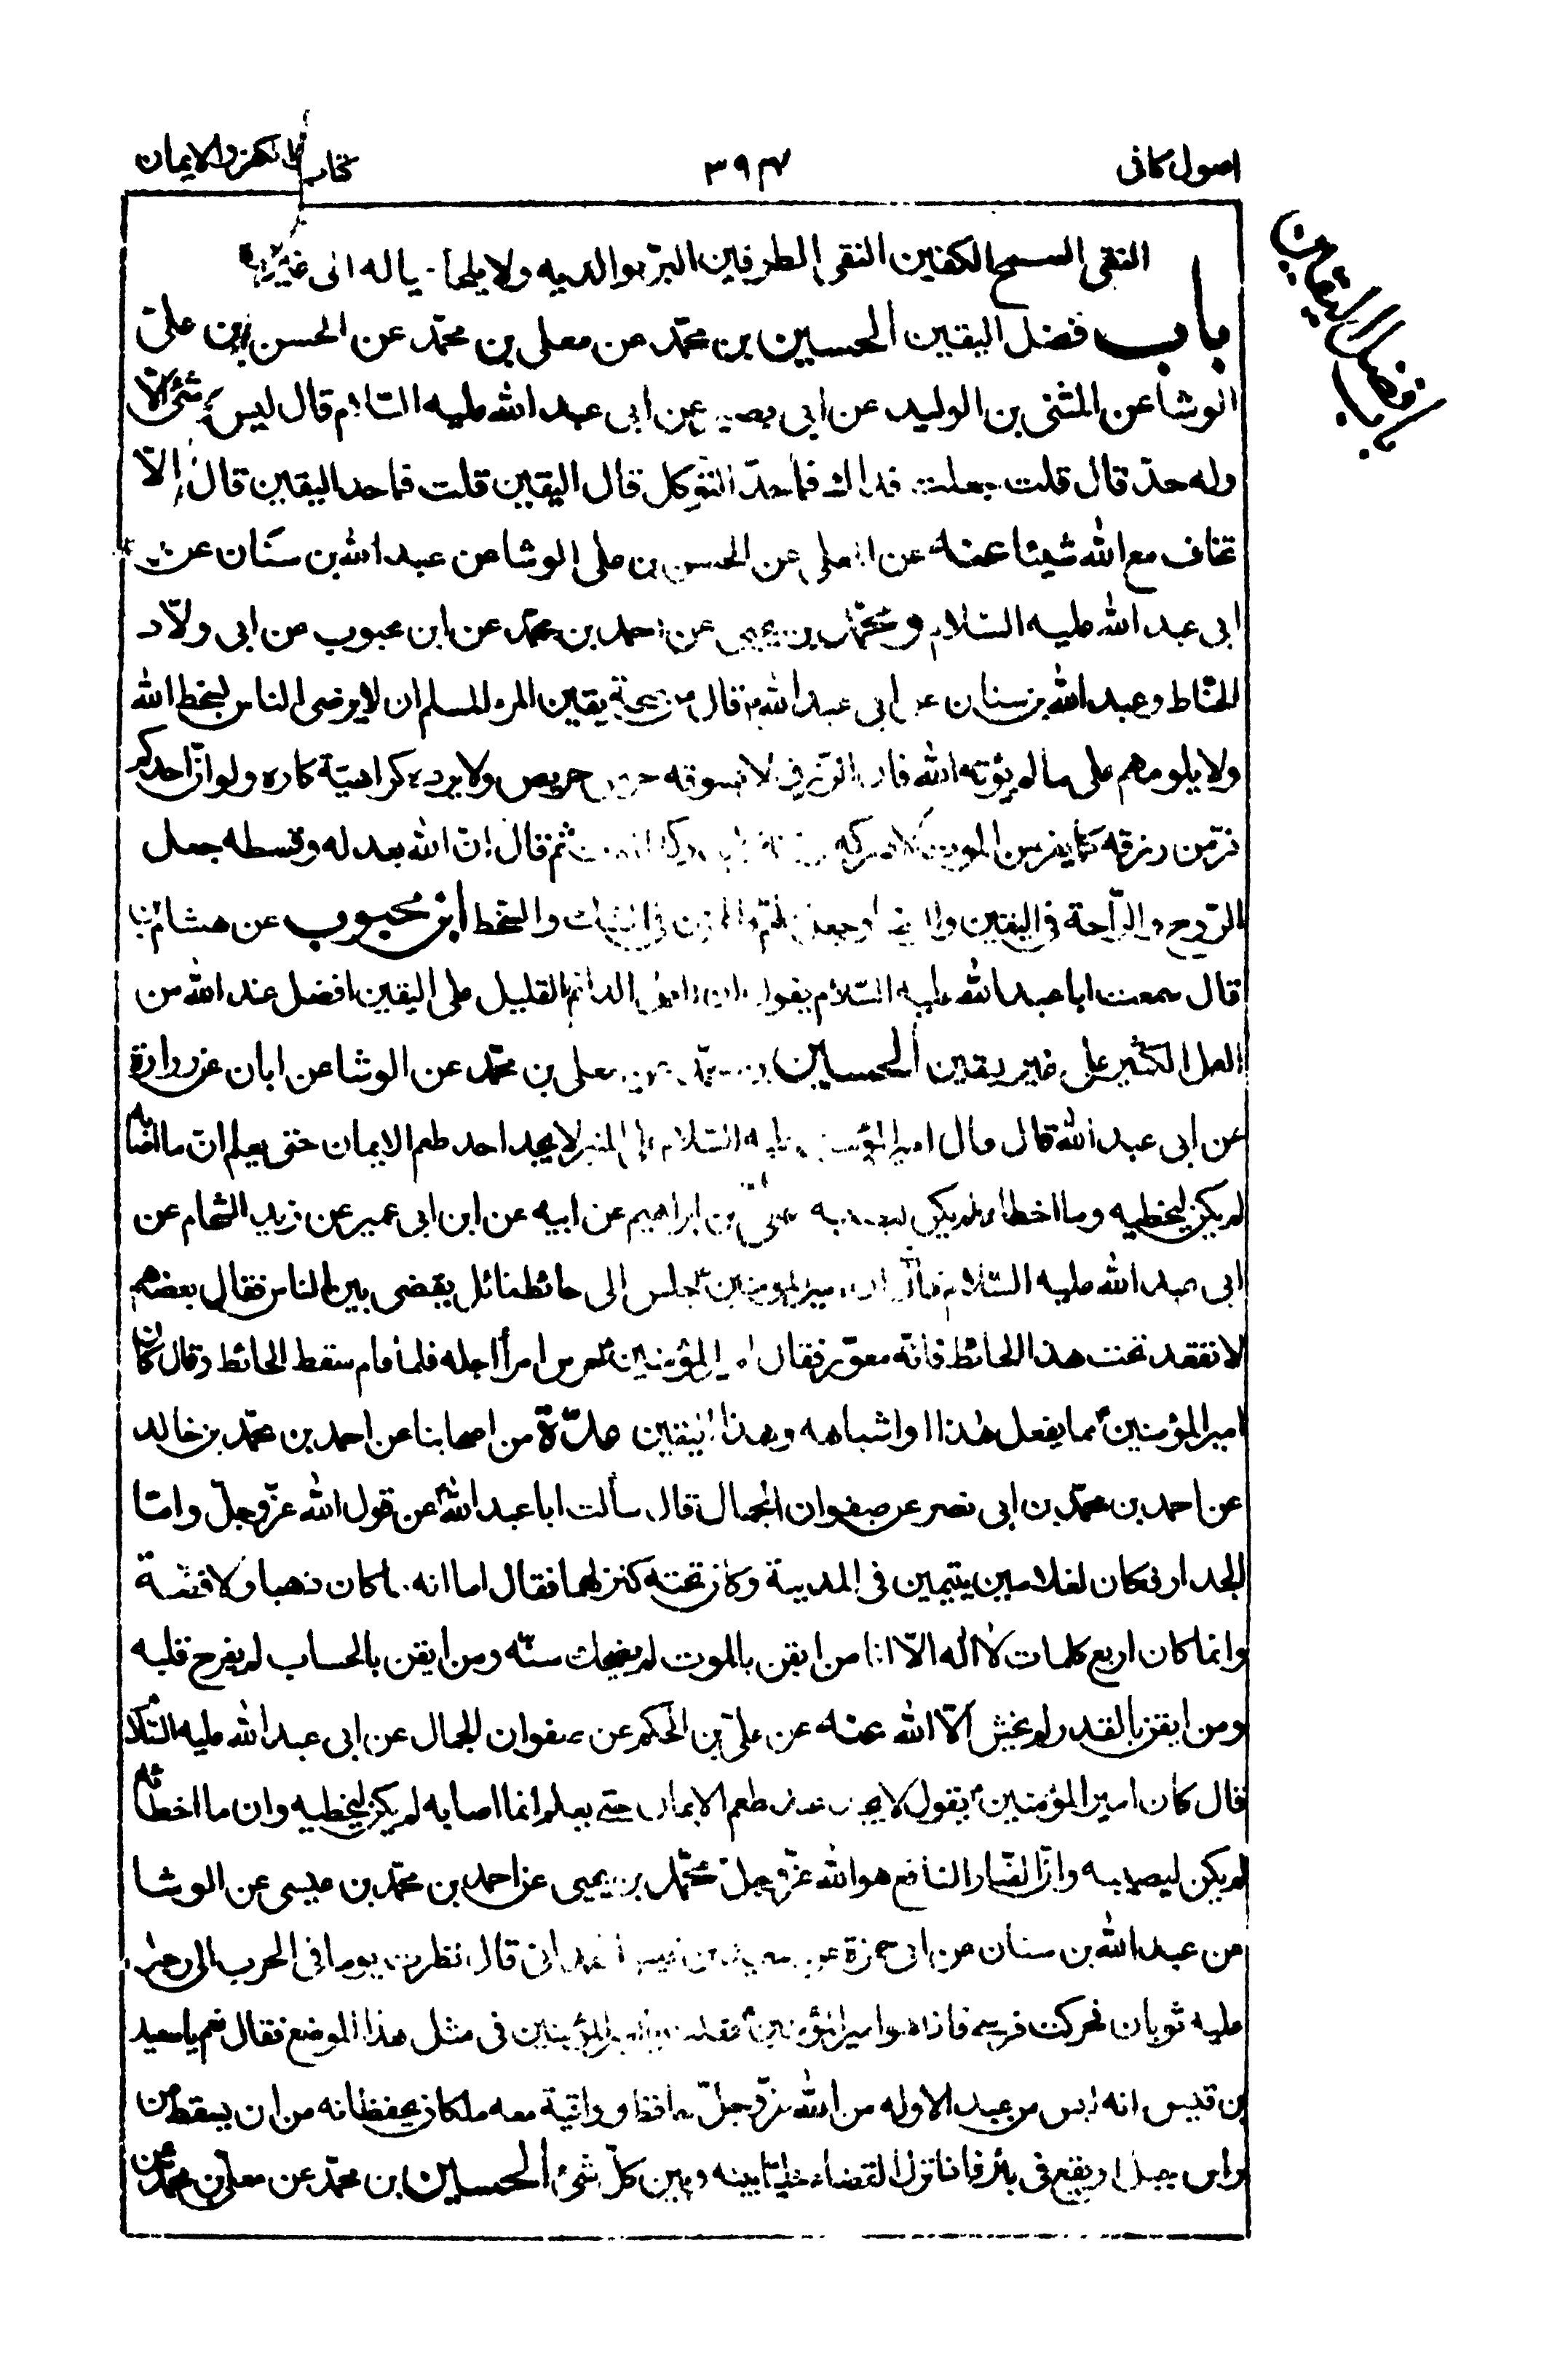 اصول كافى
٣٩٤
كتاب الكفر والايمان
باب فضل اليقين
النقى السمح الكفين النقى الطرفين البرّ بوالديه ولا يلجأ عياله الى غيره
باب فضل اليقين الحسين بن محمّد عن معلى بن محمّد عن الحسن بن علىّ
الوشا عن المثنى بن الوليد عن ابى بصير عن ابى عبد الله عليه السّلام قال ليس شئ الّا
وله حدّ قال قلت جعلت فداك فما حدّ التوكل قال اليقين قلت فما حد اليقين قال الّا
تخاف مع الله شيئا عنه عن المعلى عن الحسن بن على الوشا عن عبد الله بن سنان عن
ابى عبد الله عليه السّلام ومحمّد بن يحيى عن احمد بن محمّد عن ابن محبوب عن ابى ولّاد
الحنّاط وعبد الله بن سنان عن ابى عبد الله قال من صحة يقين المرء المسلم ان لا يرضى الناس بسخط الله
ولا يلومهم على ما لم يؤته الله فان الرّزق لا يسوقه حرص حريص ولا يرده كراهيّة كاره ولو انّ احدكم
فرّ من رزقه كما يفر من الموت لادركه رزقه كما يدركه الموت ثم قال انّ الله بعدله وقسطه جعل
الرّوح والرّاحة فى اليقين والرضا وجعل الهمّ والحزن فى الشك والسّخط ابن محبوب عن هشام بن سا
قال سمعت ابا عبد الله عليه السّلام يقول ان العمل الدائم القليل على اليقين افضل عند الله من
العمل الكثير على غير يقين الحسين بن محمّد عن معلى بن محمّد عن الوشا عن ابان عن زرارة
عن ابى عبد الله قال قال امير المؤمنين عليه السّلام على المنبر لا يجد احد طعم الايمان حتى يعلم انّ ما اصابه
لم يكن ليخطيه وما اخطاه لم يكن ليصيبه علىّ بن ابراهيم عن ابيه عن ابن ابى عمير عن زيد الشحام عن
ابى عبد الله عليه السّلام قال ان امير المؤمنين جلس الى حائط مائل يقضى بين الناس فقال بعضهم
لا تقعد تحت هذا الحائط فانّه معوّر فقال امير المؤمنين حرس امرأ اجله فلما قام سقط الحائط وقال كان
امير المؤمنين مما يفعل هذا واشباهه وهذا اليقين عدّة من اصحابنا عن احمد بن محمّد بن خالد
عن احمد بن محمّد بن ابى نصر عن صفوان الجمال قال سألت ابا عبد الله عن قول الله عزّ وجلّ وامّا
الجدار فكان لغلامين يتيمين فى المدينة وكان تحته كنز لهما فقال اما انه ما كان ذهبا ولا فضّة
وانما كان اربع كلمات لا اله الّا انا من ايقن بالموت لم يضحك سنّه ومن ايقن بالحساب لم يفرح قلبه
ومن ايقن بالقدر لم يخش الّا الله عنه عن علىّ بن الحكم عن صفوان الجمال عن ابى عبد الله عليه السّلام
قال كان امير المؤمنين يقول لا يجد عبد طعم الايمان حتى يعلم انما اصابه لم يكن ليخطيه وان ما اخطأه
لم يكن ليصيبه وانّ الضّار النافع هو الله عزّ وجلّ محمّد بن يحيى عن احمد بن محمّد بن عيسى عن الوشا
عن عبد الله بن سنان عن ابى حمزة عن سعيد بن قيس الهمدانى قال نظرت يوما فى الحرب الى رجل
عليه ثوبان فحركت فرسى فاذا هو امير المؤمنين فقلت يا امير المؤمنين فى مثل هذا الموضع فقال نعم يا سعيد
بن قيس انه ليس من عبد الا وله من الله عزّ وجلّ حافظ وواقية معه ملكان يحفظانه من ان يسقط من
راس جبل او يقع فى بئر فاذا نزل القضاء خليّا بينه وبين كلّ شئ الحسين بن محمّد عن معلى بن محمّد عن